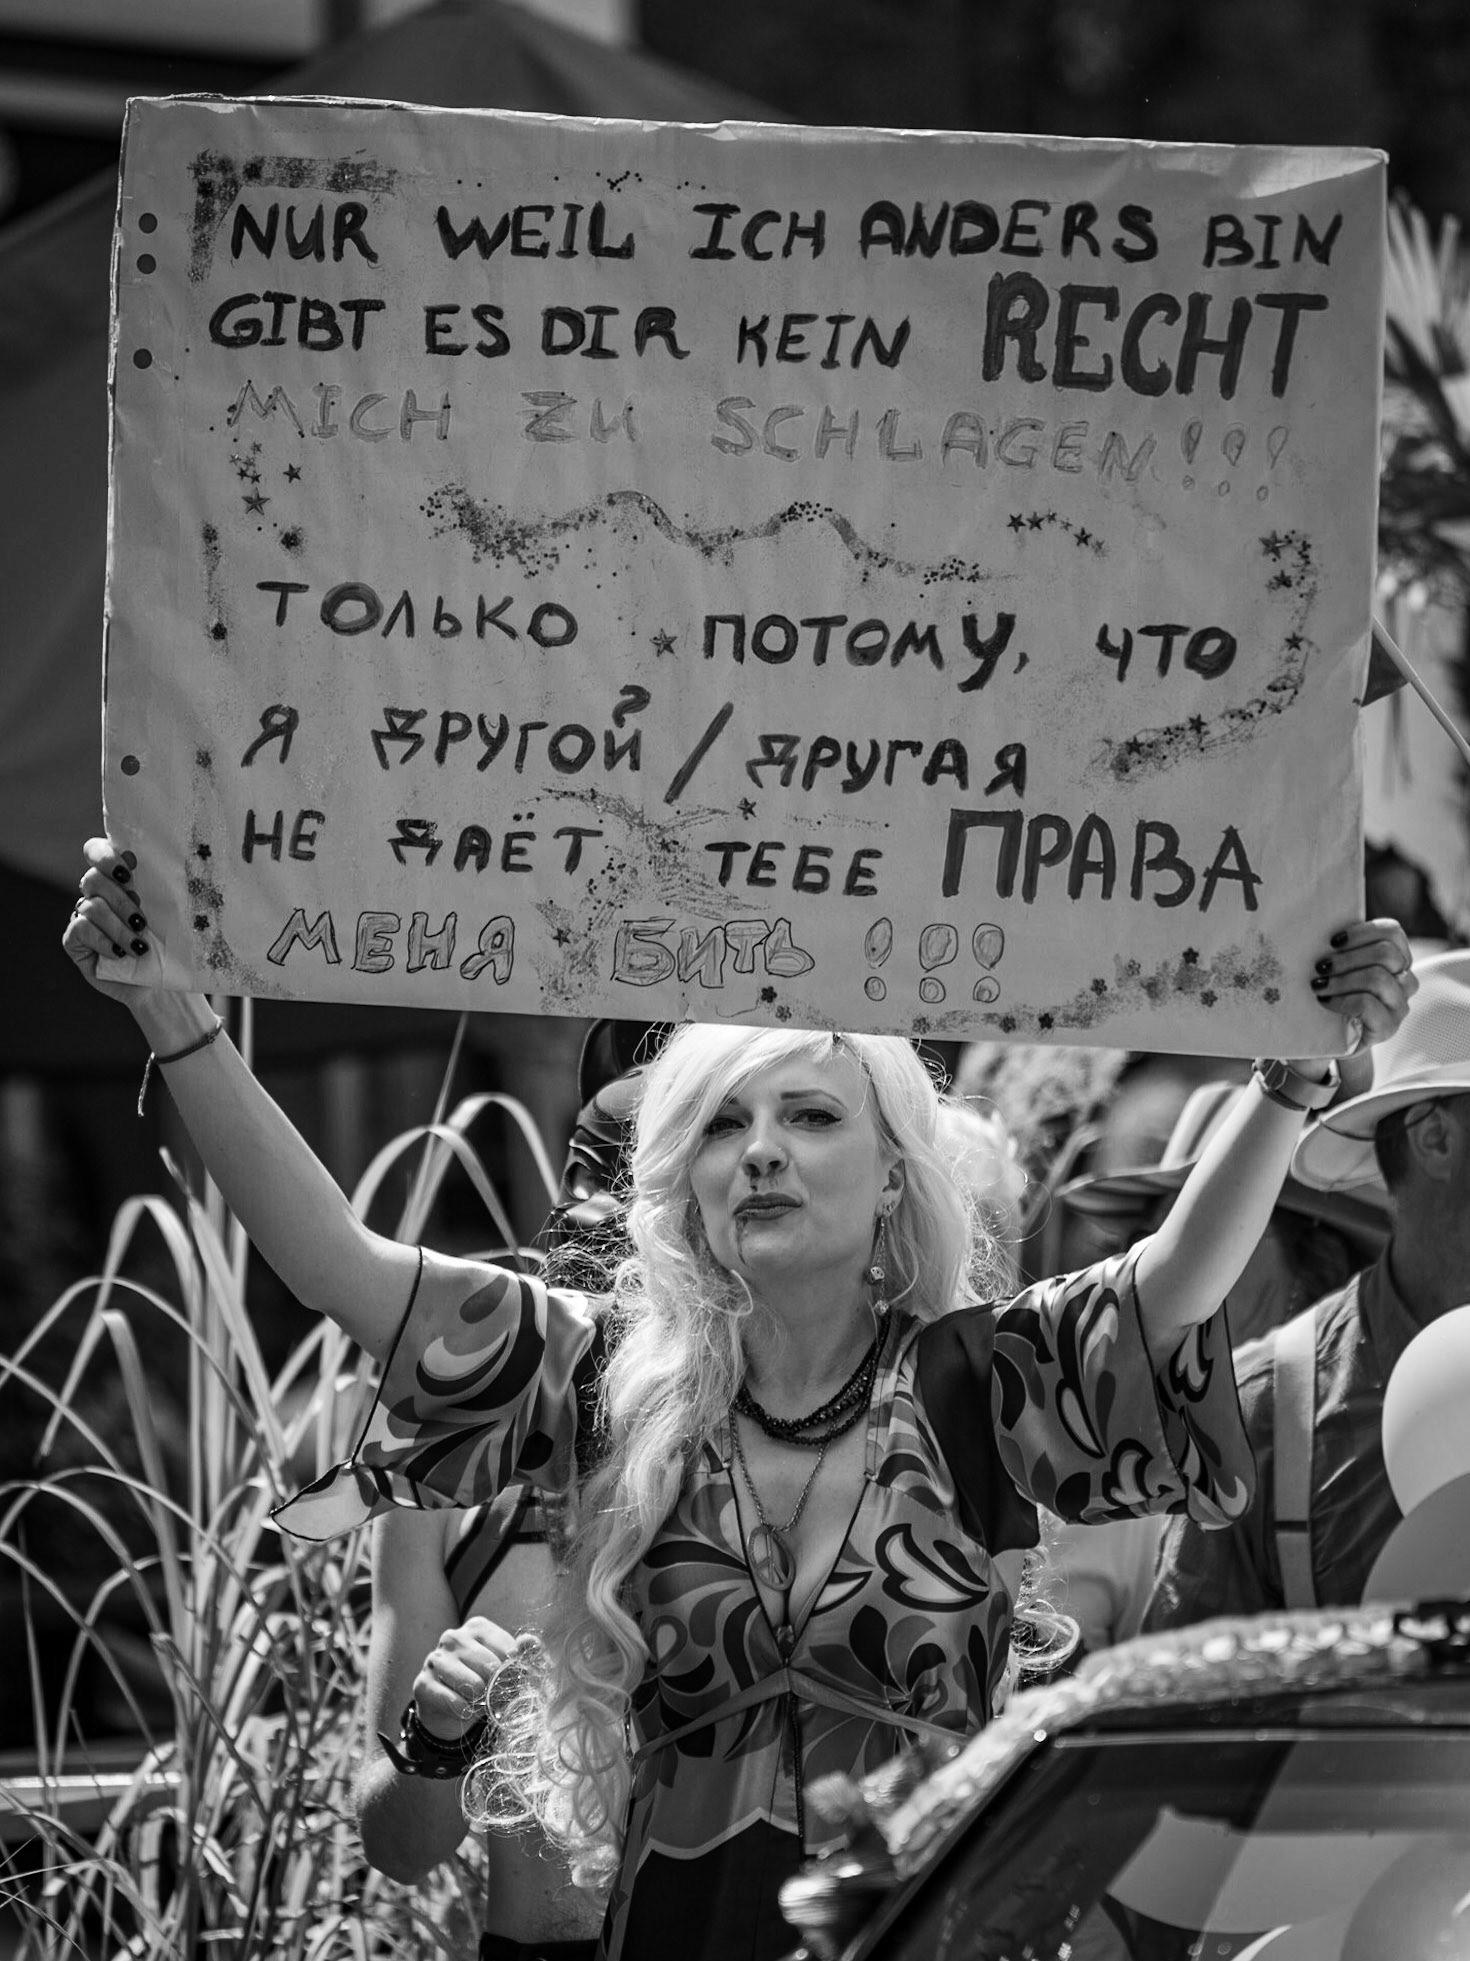 NUR WEIL ICH ANDERS BIN
GIBT ES DIR KEIN RECHT
MICH ZU SCHLAGEN!!!
ТОЛЬКО ПОТОМУ, ЧТО
Я ДРУГОЙ/ДРУГАЯ
НЕ ДАЁТ ТЕБЕ ПРАВА
МЕНЯ БИТЬ!!!